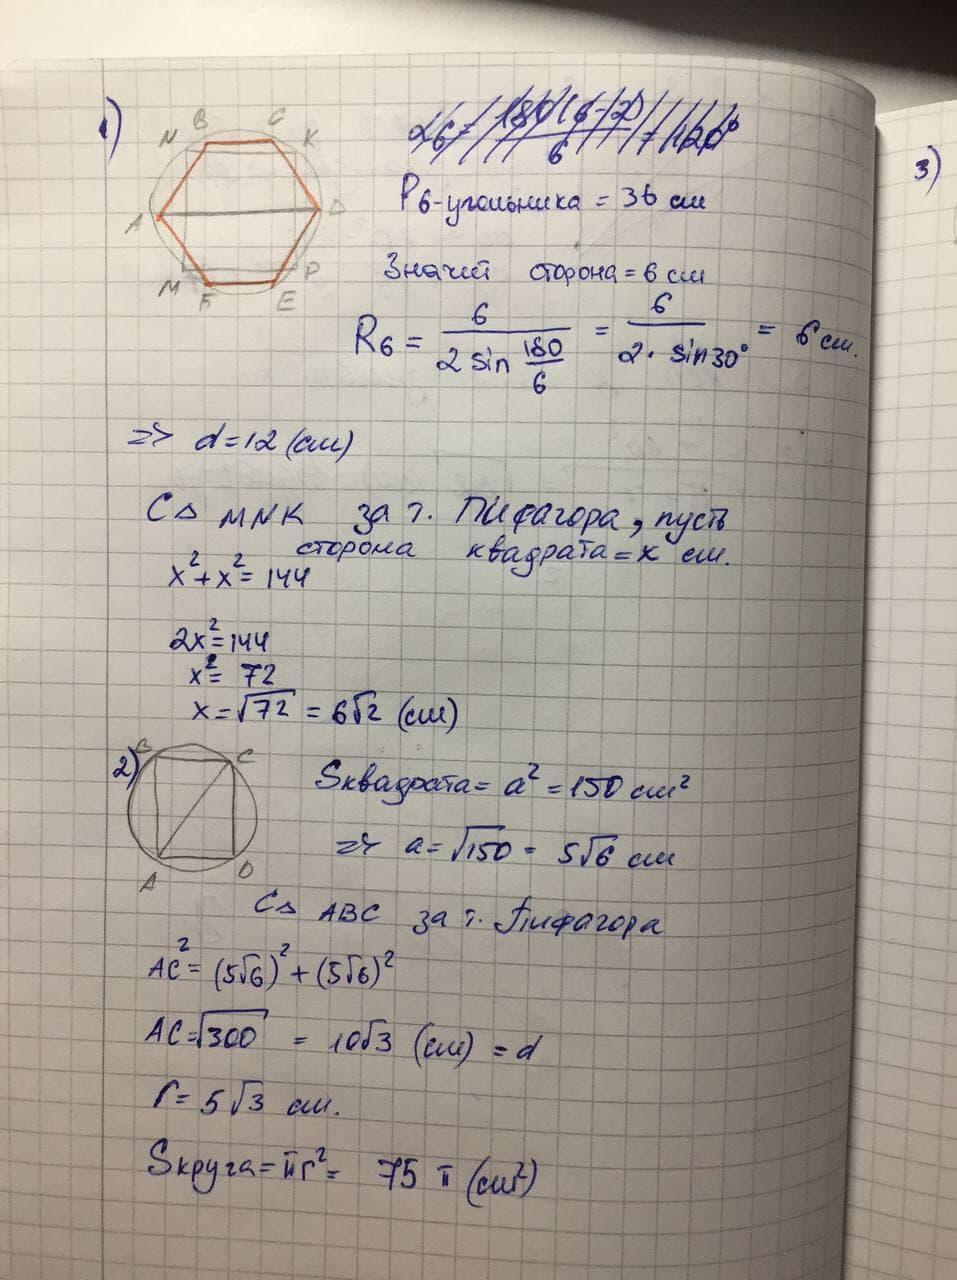 1)
B C
N K
A D
M P
F E
α6 = 180(6-2)/6 = 120°
P6-угольника = 36 см
Значит сторона = 6 см
R6 = 6/(2 sin 180/6) = 6/(2 · sin30°) = 6 см.
=> d=12 (см)
С△ MNK за т. Пифагора, пусть
сторона квадрата = x см.
x² + x² = 144
2x² = 144
x² = 72
x = √72 = 6√2 (см)
2)
B C
A D
Sквадрата = a² = 150 см²
=> a = √150 = 5√6 см
С△ ABC за т. Пифагора
AC² = (5√6)² + (5√6)²
AC = √300 = 10√3 (см) = d
r = 5√3 см.
Sкруга = πr² = 75 π (см²)
3)